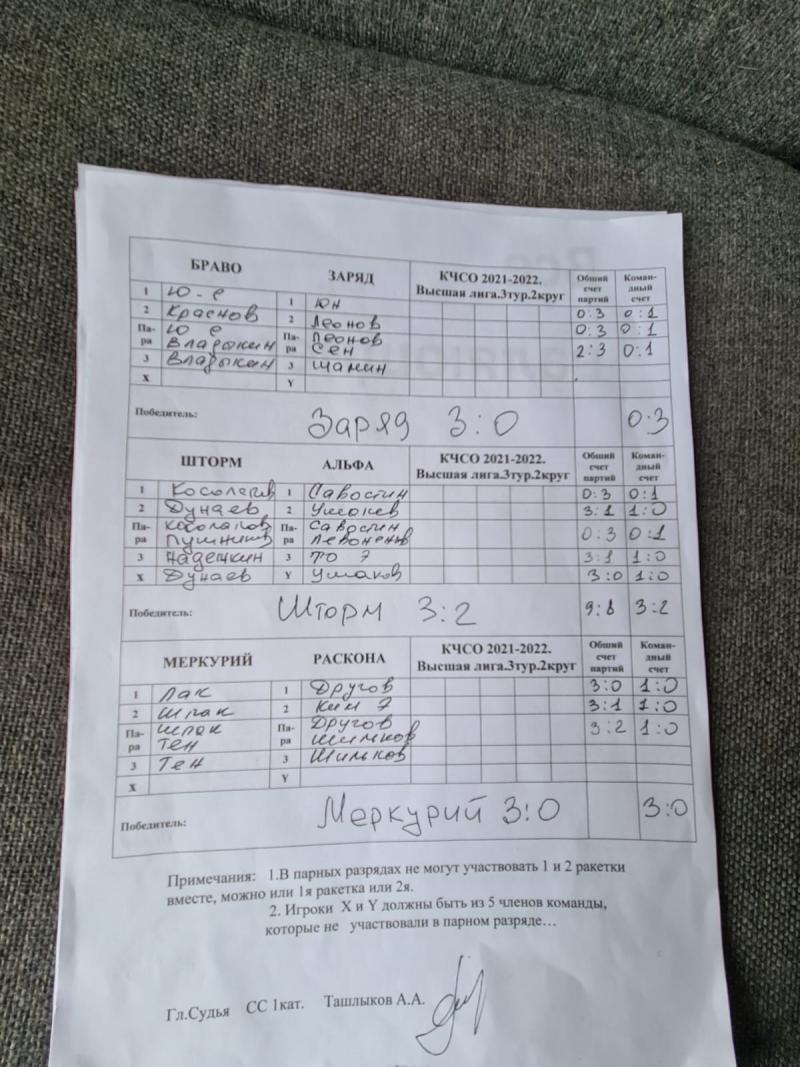 БРАВО ЗАРЯД КЧСО 2021-2022. Высшая лига.3тур.2круг Общий счет партий Коман-дный счет
1 Ю-е 1 Юн 0:3 0:1
2 Краснов 2 Леонов 0:3 0:1
Па-ра Ю е Владыкин Па-ра Леонов Сен 2:3 0:1
3 Владыкин 3 Шамин
X Y
Победитель: Заряд 3:0 0:3
ШТОРМ АЛЬФА КЧСО 2021-2022. Высшая лига.3тур.2круг Общий счет партий Коман-дный счет
1 1 Савостин 0:3 0:1
2 Дунаев 2 3:1 1:0
Па-ра Косолапов Па-ра Савостин 0:3 0:1
3 Надешкин 3 3:1 1:0
X Дунаев Y Ушаков 3:0 1:0
Победитель: Шторм 3:2 9:8 3:2
МЕРКУРИЙ РАСКОНА КЧСО 2021-2022. Высшая лига.3тур.2круг Общий счет партий Коман-дный счет
1 Пак 1 Другов 3:0 1:0
2 Шпак 2 Ким 3:1 1:0
Па-ра Шпак Тен Па-ра Другов 3:2 1:0
3 Тен 3 Шильков
X Y
Победитель: Меркурий 3:0 3:0
Примечания: 1.В парных разрядах не могут участвовать 1 и 2 ракетки
вместе, можно или 1я ракетка или 2я.
2. Игроки X и Y должны быть из 5 членов команды,
которые не участвовали в парном разряде…
Гл.Судья СС 1кат. Ташлыков А.А.